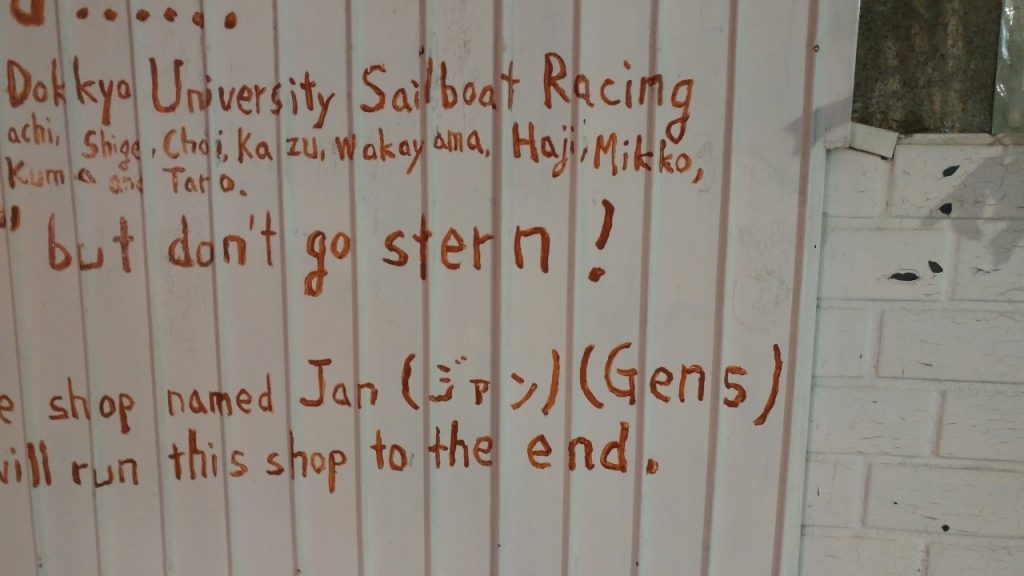 Dokkyo University Sailboat Racing
achi, Shige, Choi, Kazu, Wakayama, Haji, Mikko,
Kuma and Taro.
" but don't go stern!
e shop named Jan (ジャン) (Gens)
will run this shop to the end.